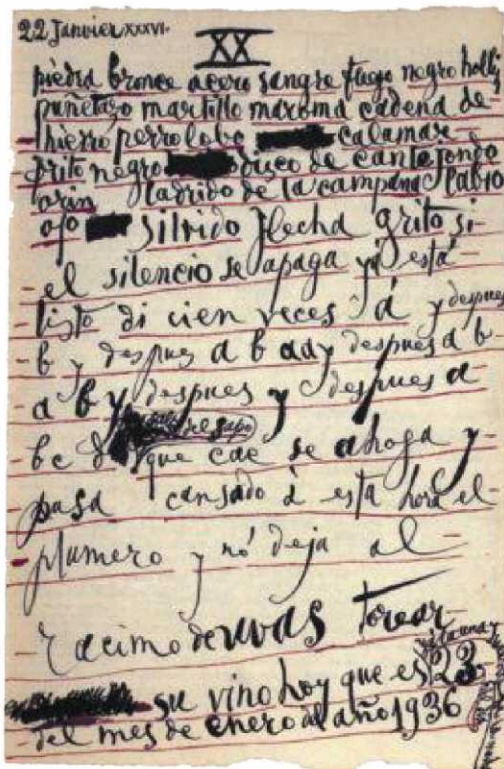 22 Janvier XXXVI.
XX
piedra bronce acero sangre fuego negro holli
puñetazo martillo maroma cadena de
hierro perro lobo calamar
grito negro disco de cante jondo
orin ladrido de la campana labio
ojo silvido flecha grito si-
- el silencio se apaga y está
- listo di cien veces á y despues
- b y despues a b a a y despues a b-
- a b y despues y despues a
- b c que cae se ahoga y-
pasa cansado à esta hora el-
- plumero y nó deja al
- racimo de uvas torear-
su vino hoy que es 23
del mes de enero del año 1936